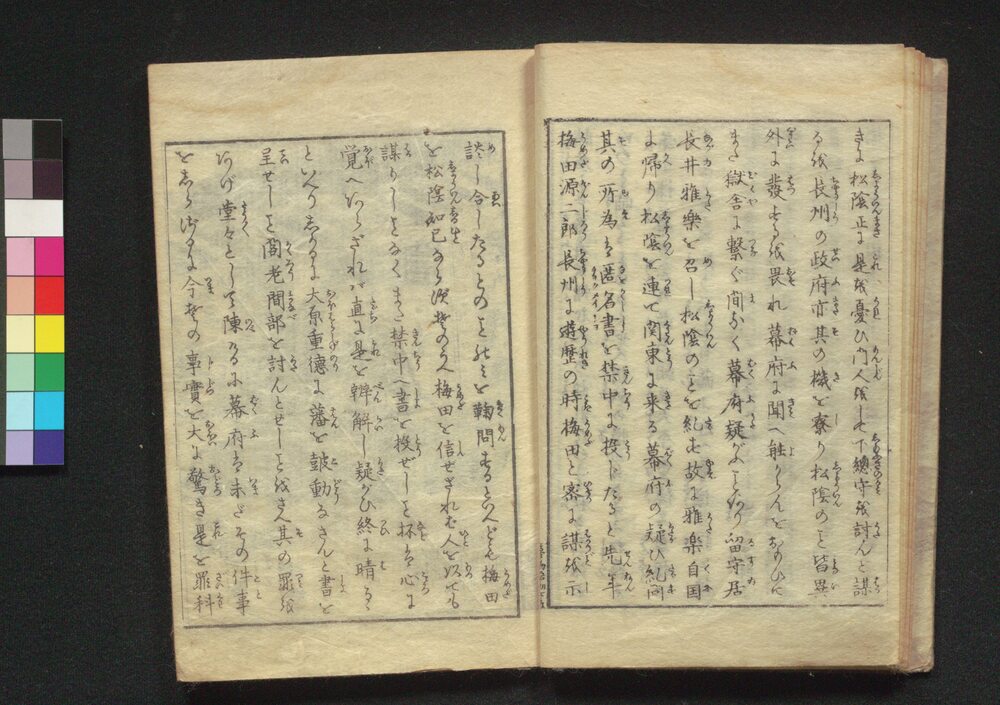 きよ松陰正に是を憂ひ門人をして下總守を討んと謀
るを長州の政府亦其の機を察り松陰のこと皆異
外に發するを畏れ幕府に聞へ触らんをおもひに
また獄舎に繋ぐ間もなく幕府疑がふことあり留守居
長井雅樂を召し松陰のことを糺す故に雅樂自国
よ帰り松陰を連て関東に来る幕府の疑ひ糺問
其の所為は匿名書を禁中に投じたると先年
梅田源二郎長州に遊歴の時梅田と密に謀を示
談し合したるとのことのみを鞠問するといへども梅田
を松陰知己なる演者のみ梅田を信せざれば人を以ても
謀りしことなくまた禁中へ書を投ぜしこと抔は心に
覚へあらざれば直に是を辨解し疑がひ終に晴るゝ
といへりしかるに大原重德に藩を皷動なさんと書を
呈せしこと閣老間部を討んとせしことはさん其の罪を
あげ堂々として陳るに幕府は未だその件事
をしらざるに今その事實を大に驚き是を罪科